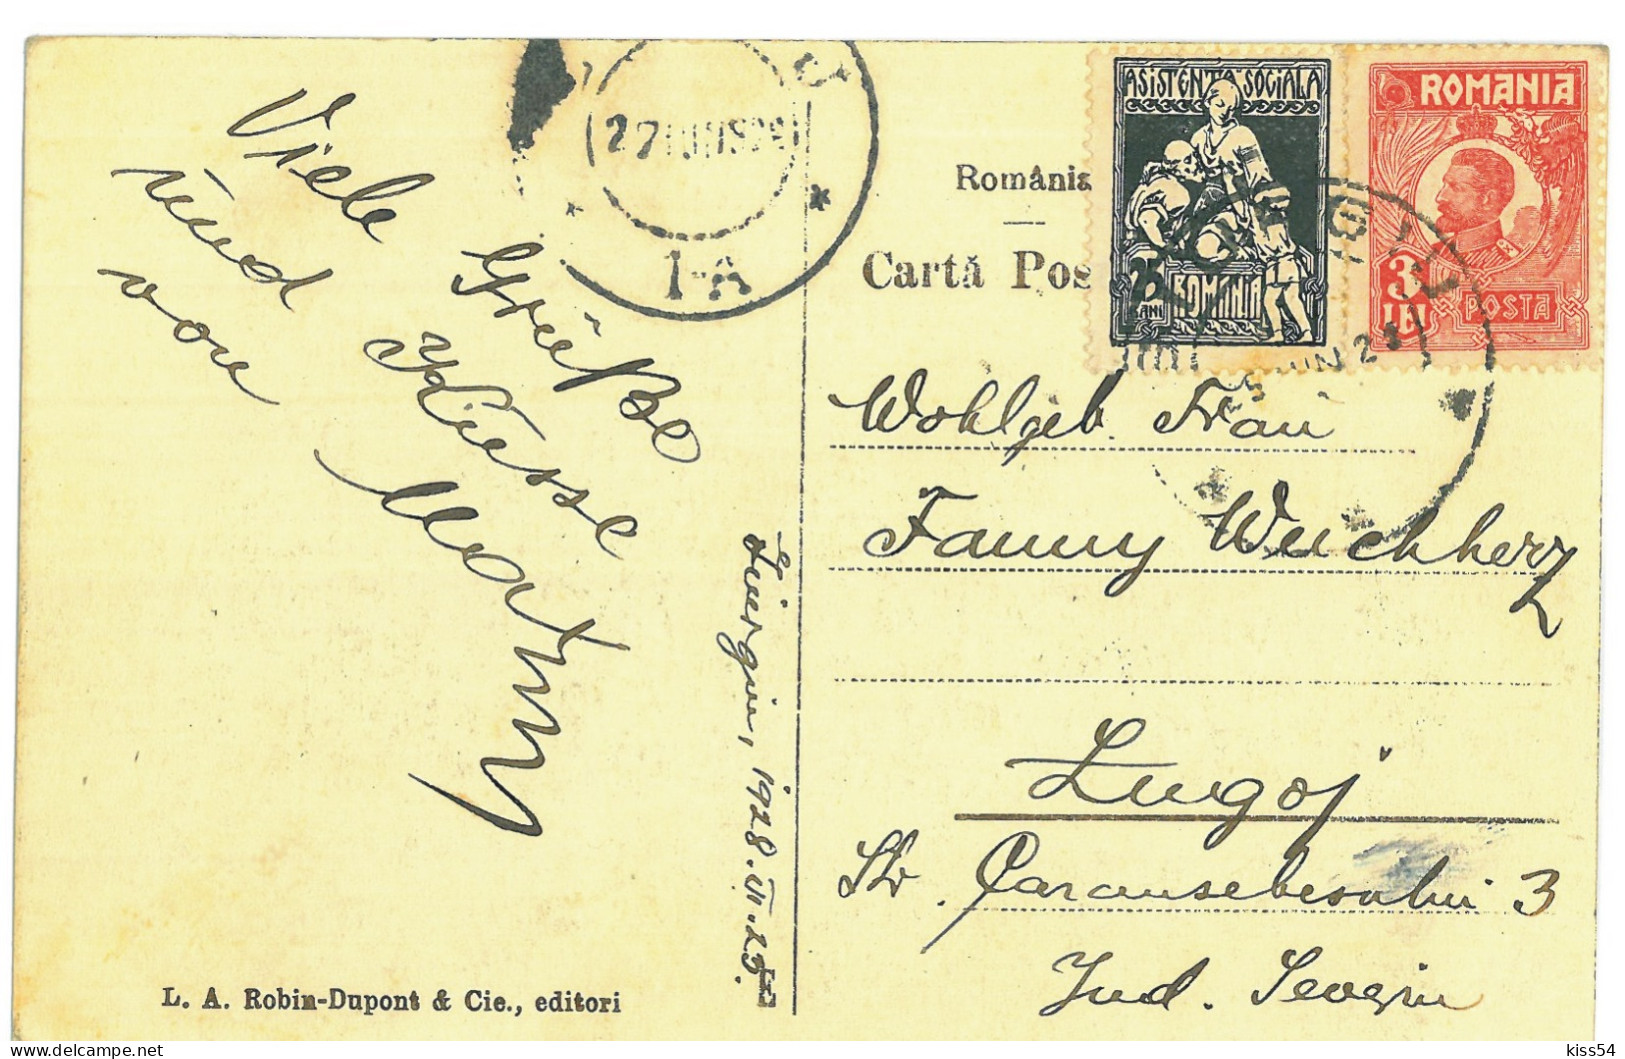 Viele Grüße
und Küsse
von Martin
Giurgiu, 1928. VI. 25.
L. A. Robin-Dupont & Cie., editori
27 IUN 1928
1-A
România
Cartă Pos
ASISTENTA SOCIALA
25
BANI
ROMANIA
ROMANIA
3
LEI
POSTA
25 IUN 28
Wohlgeb. Frau
Fanny Weichherz
Lugoj
Str. Caransebesului 3
Jud. Severin
kiss54
delcampe.net